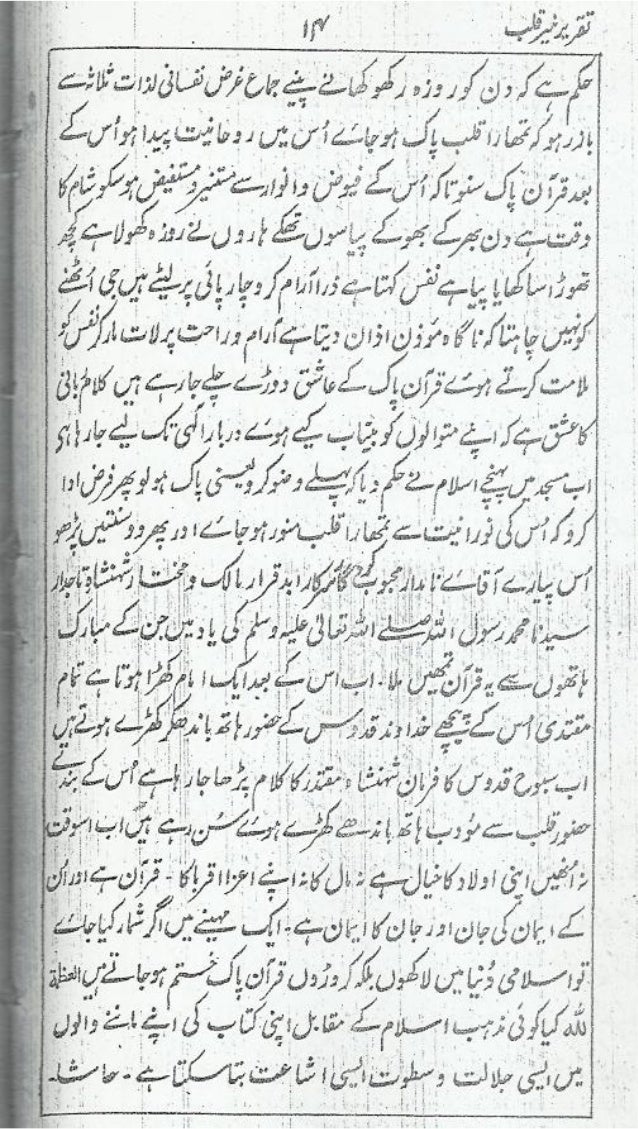 تقریر خیر قلب ۱۴
حکم ہے کہ دن کو روزہ رکھو کھانے پینے جماع غرض نفسانی لذات ثلاثہ سے
باز رہو کہ تمھارا قلب پاک ہو جائے اُس میں روحانیت پیدا ہو اُس کے
بعد قرآن پاک سنو تاکہ اُس کے فیوض و انوار سے مستنیر و مستفیض ہو سکو شام کا
وقت ہے دن بھر کے بھوکے پیاسوں تھکے ہاروں نے روزہ کھولا ہے کچھ
تھوڑا سا کھایا پیا ہے نفس کہتا ہے ذرا آرام کرو چارپائی پر لیٹے ہیں جی اُٹھنے
کو نہیں چاہتا کہ ناگاہ مؤذن اذان دیتا ہے آرام و راحت پر لات مار کر نفس کو
ملامت کرتے ہوئے قرآن پاک کے عاشق دوڑے چلے جا رہے ہیں کلام ربانی
کا عشق ہے کہ اپنے متوالوں کو بیتاب کیے ہوئے دربار الٰہی تک لیے جا رہا ہی
اب مسجد میں پہنچے اسلام نے حکم دیا کہ پہلے وضو کرو یعنی پاک ہو لو پھر فرض ادا
کرو کہ اُس کی نورانیت سے تمھارا قلب منور ہو جائے اور پھر دو سنتیں پڑھو
اُس پیارے آقائے نامدار محبوب کردگار سرکار ابد قرار مالک و مختار شہنشاہ تاجدار
سیدنا محمد رسول اللہ صلے اللہ تعالیٰ علیہ وسلم کی یاد میں جن کے مبارک
ہاتھوں سے یہ قرآن تمھیں ملا۔ اب اس کے بعد ایک امام کھڑا ہوتا ہے تمام
مقتدی اُس کے پیچھے خداوند قدوس کے حضور ہاتھ باندھکر کھڑے ہوتے ہیں
اب سبوح قدوس کا فرمان شہنشاہ مقتدر کا کلام پڑھا جا رہا ہے اُس کے بندے
حضور قلب سے مؤدب ہاتھ باندھے کھڑے ہوئے سُن رہے ہیں اب اسوقت
نہ اُنھیں اپنی اولاد کا خیال ہے نہ مال کا نہ اپنے اعزا اقربا کا۔ قرآن ہے اور اُن
کے ایمان کی جان اور جان کا ایمان ہے۔ ایک مہینے میں اگر شمار کیا جائے
تو اسلامی دُنیا میں لاکھوں بلکہ کروڑوں قرآن پاک ختم ہو جاتے ہیں العظمۃ
للہ کیا کوئی مذہب اسلام کے مقابل اپنی کتاب کی اپنے ماننے والوں
میں ایسی جلالت و سطوت ایسی اشاعت بتا سکتا ہے۔ حاشا۔